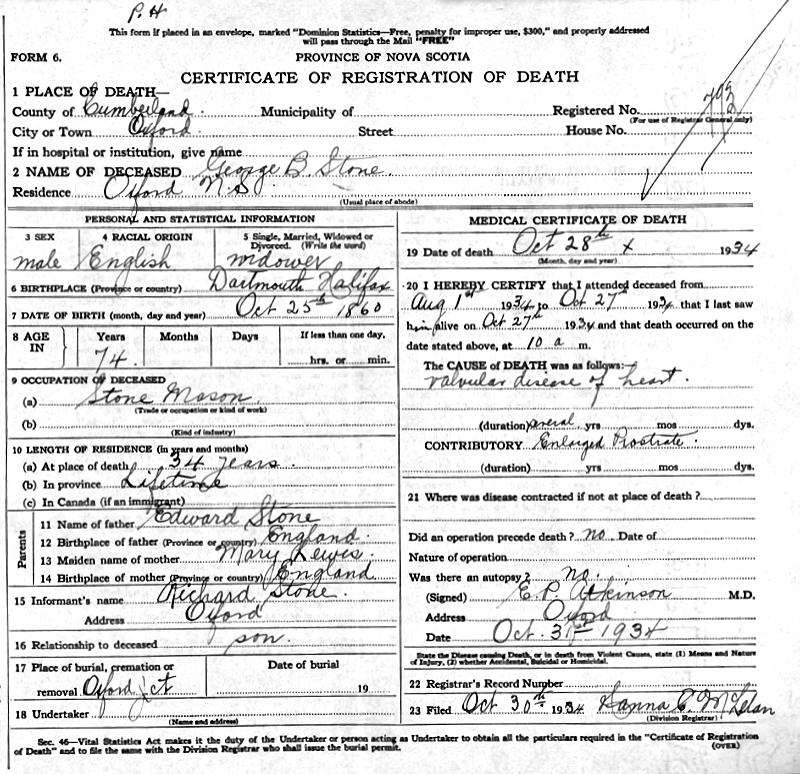 P. H
This form if placed in an envelope, marked "Dominion Statistics—Free, penalty for improper use, $300," and properly addressed
will pass through the Mail "FREE"
FORM 6.
PROVINCE OF NOVA SCOTIA
CERTIFICATE OF REGISTRATION OF DEATH
1 PLACE OF DEATH—
County of Cumberland. Municipality of Registered No. 793
(For use of Registrar General only)
City or Town Oxford. Street House No.
If in hospital or institution, give name
2 NAME OF DECEASED George B. Stone.
Residence Oxford N.S
(Usual place of abode)
PERSONAL AND STATISTICAL INFORMATION
3 SEX 4 RACIAL ORIGIN 5 Single, Married, Widowed or Divorced. (Write the word)
male English widower
6 BIRTHPLACE (Province or country) Dartmouth Halifax
7 DATE OF BIRTH (month, day and year) Oct 25th 1860
8 AGE IN Years Months Days If less than one day,
74. hrs. or min.
9 OCCUPATION OF DECEASED
(a) Stone Mason
(Trade or occupation or kind of work)
(b)
(Kind of industry)
10 LENGTH OF RESIDENCE (in years and months)
(a) At place of death 34 years.
(b) In province Lifetime
(c) In Canada (if an immigrant)
Parents
11 Name of father Edward Stone
12 Birthplace of father (Province or country) England.
13 Maiden name of mother Mary Lewis.
14 Birthplace of mother (Province or country) England
15 Informant's name Richard Stone.
Address Oxford
16 Relationship to deceased son.
17 Place of burial, cremation or removal Oxford Jct Date of burial 19
18 Undertaker
(Name and address)
MEDICAL CERTIFICATE OF DEATH
19 Date of death Oct 28th x 1934
(Month, day and year)
20 I HEREBY CERTIFY that I attended deceased from
Aug 1st 1934 to Oct 27th 1934 that I last saw
him alive on Oct 27th 1934 and that death occurred on
date stated above, at 10 a m.
The CAUSE of DEATH was as follows:—
valvular disease of heart.
(duration) several yrs mos dys.
CONTRIBUTORY Enlarged Prostrate.
(duration) yrs mos dys.
21 Where was disease contracted if not at place of death?
Did an operation precede death? no. Date of
Nature of operation
Was there an autopsy? no.
(Signed) E.P. Atkinson M.D.
Address Oxford
Date Oct. 31st 1934
State the Disease causing Death, or in death from Violent Causes, state (1) Means and Nature
of Injury, (2) whether Accidental, Suicidal or Homicidal.
22 Registrar's Record Number
23 Filed Oct 30th 1934 Hanna C. McLelan
(Division Registrar)
Sec. 46—Vital Statistics Act makes it the duty of the Undertaker or person acting as Undertaker to obtain all the particulars required in the "Certificate of Registration
of Death" and to file the same with the Division Registrar who shall issue the burial permit.
(OVER)